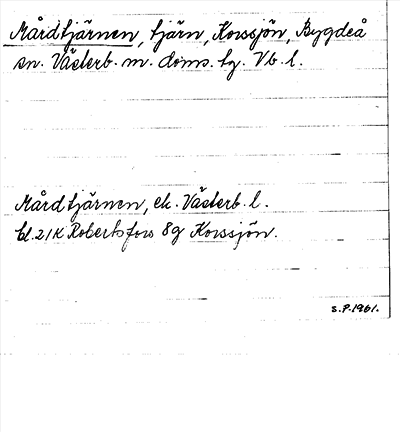 Mårdtjärnen, tjärn, Korssjön, Bygdeå
sn. Västerb. m. doms. tg. Vb. l.
Mårdtjärnen, ek. Västerb. l.
bl. 21K Robertsfors 8g Korssjön.
S.P.1961.